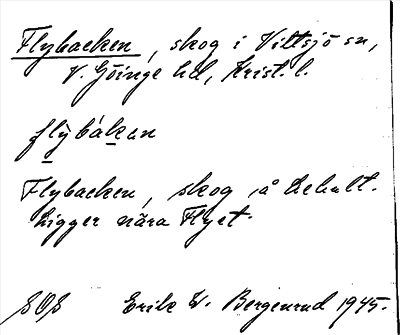 Flybacken, skog i Vittsjö sn,
V. Göinge hd, Krist. l.
flỳbákan
Flybacken, skog å Dehult.
Ligger nära Flyet.
SOS Erik W. Bergenrud 1945.